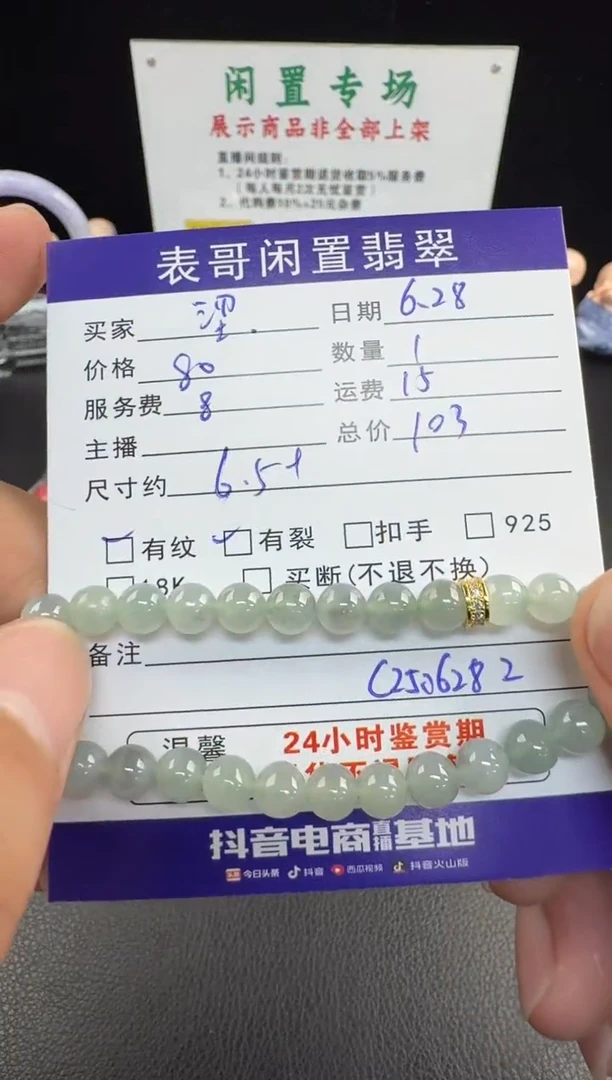 闲置专场
展示商品非全部上架
直播间规则：
1、24小时鉴赏期退货收取5%服务费
（每人每月2次无忧鉴赏）
2、代购费10%+25元杂费
表哥闲置翡翠
买家 日期 6.28
价格 80 数量 1
服务费 8 运费 15
主播 总价 103
尺寸约 6.5+
有纹 有裂 扣手 925
18K 买断(不退不换)
备注
C2506282
温馨 24小时鉴赏期
抖音电商直播基地
今日头条 抖音 西瓜视频 抖音火山版